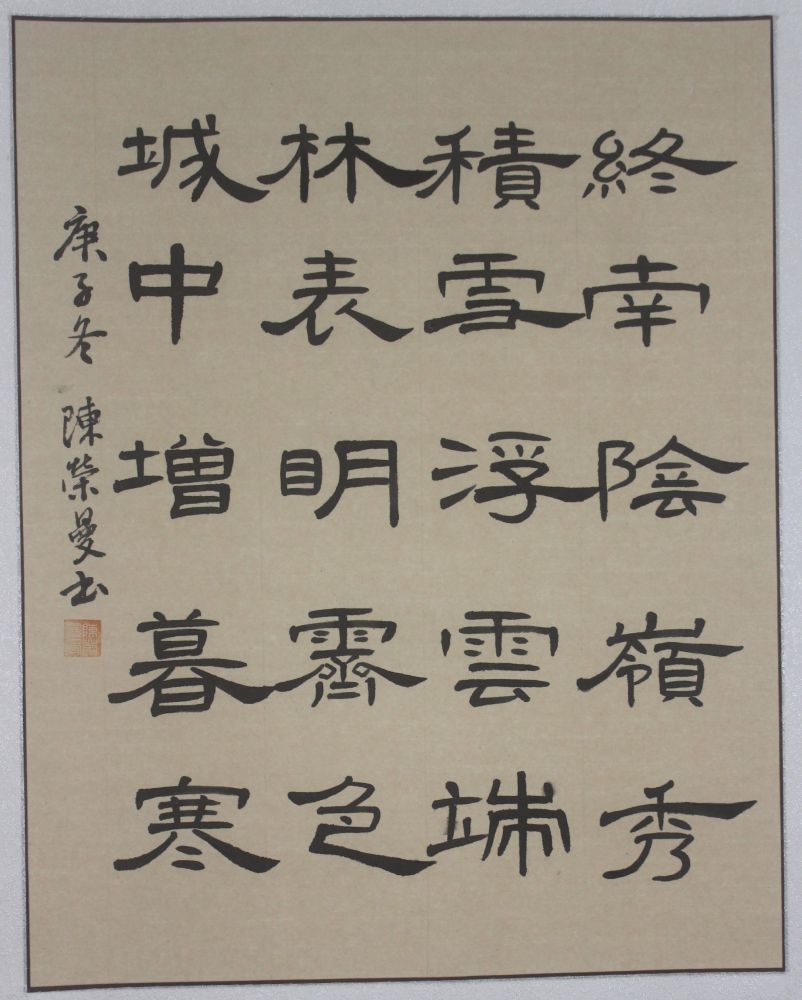 終南陰嶺秀
積雪浮雲端
林表明霽色
城中增暮寒
庚子冬 陳榮曼书